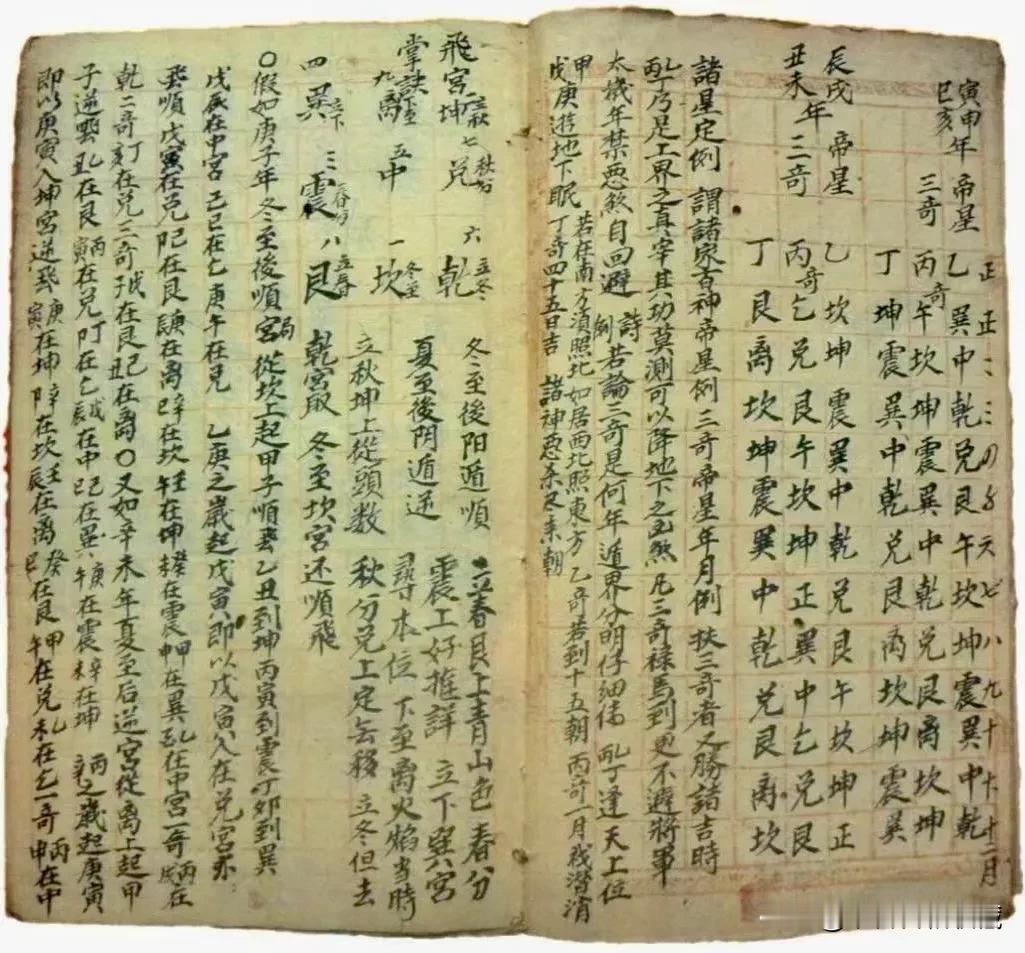 寅申
巳亥年 帝星 三奇
正 正二三四五六七八九十十一十二月
乙 巽中乾兑艮午坎坤震巽中乾
丙奇午坎坤震巽中乾兑艮离坎坤
丁 坤震巽中乾兑艮离坎坤震巽
辰戌
丑未年 帝星 三奇
乙 坎坤震巽中乾兑艮午坎坤正
丙奇乞兑艮午坎坤正巽中乞兑艮
丁 艮离坎坤震巽中乾兑艮离坎
諸星定例 謂諸家吉神帝星例三奇帝星年月例 扶三奇者又勝諸吉時
乙丙丁乃是上界之真宰其功莫測可以降地下之凶煞凡三奇禄馬到更不避將軍
太歲年禁惡煞自回避 詩例 若論三奇是何年遁界分明仔細 乙丙丁逢天上位
甲戊庚遊地下眠 若在南方須照北如居西北照東方 乙奇若到十五朝丙奇一月 潜消
丁奇四十五日吉 諸神惡杀尽來朝
飛宫 坤立秋 七兑秋分 六乾立冬 冬至後阳遁順 立春艮上青山色春分
掌訣 九离夏至 五中 一坎冬至 夏至後阴遁逆 震上好推詳 立下巽宫
四巽立下 三震春分 八艮立春 立秋坤上從頭数 尋本位 下至离火焰当時
乾宫取 冬至坎宫还順飛 秋分兑上定去移 立冬但去
○假如庚子年冬至後順宫局從坎上起甲子順飛乙丑到坤丙寅到震丁卯到巽
戊辰在中宫己巳在乞庚午在兑 乙庚之歲起戊寅即以戊寅入在兑宫亦
飛順戊寅在兑己卯在艮庚辰在离辛巳在坎壬午在坤癸未在震甲申在巽乙酉在中宫一奇丙戌在
乾二奇丁亥在兑三奇戊子在艮己丑在离○又如辛未年夏至后逆宫從离上起甲
子逆飛乙丑在艮丙寅在兑丁卯在乞戊辰在中己巳在巽庚午在震辛未在坤 丙辛之歲起庚寅
即以庚寅入坤宫逆飛庚寅在坤辛卯在坎壬辰在离癸巳在艮甲午在兑乙未在乞一奇丙申在中